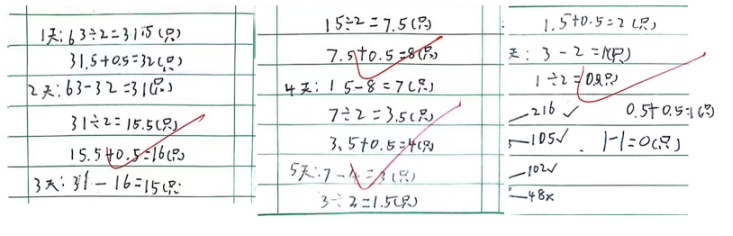 1天:63÷2=31.5(只)
31.5+0.5=32(只)
2天:63-32=31(只)
31÷2=15.5(只)
15.5+0.5=16(只)
3天:31-16=15(只)
15÷2=7.5(只)
7.5+0.5=8(只)
4天:15-8=7(只)
7÷2=3.5(只)
3.5+0.5=4(只)
5天:7-4=3(只)
3÷2=1.5(只)
1.5+0.5=2(只)
天:3-2=1(只)
1÷2=0.5(只)
216✓ 0.5+0.5=1(只)
105✓ 1-1=0(只)
102✓
48×